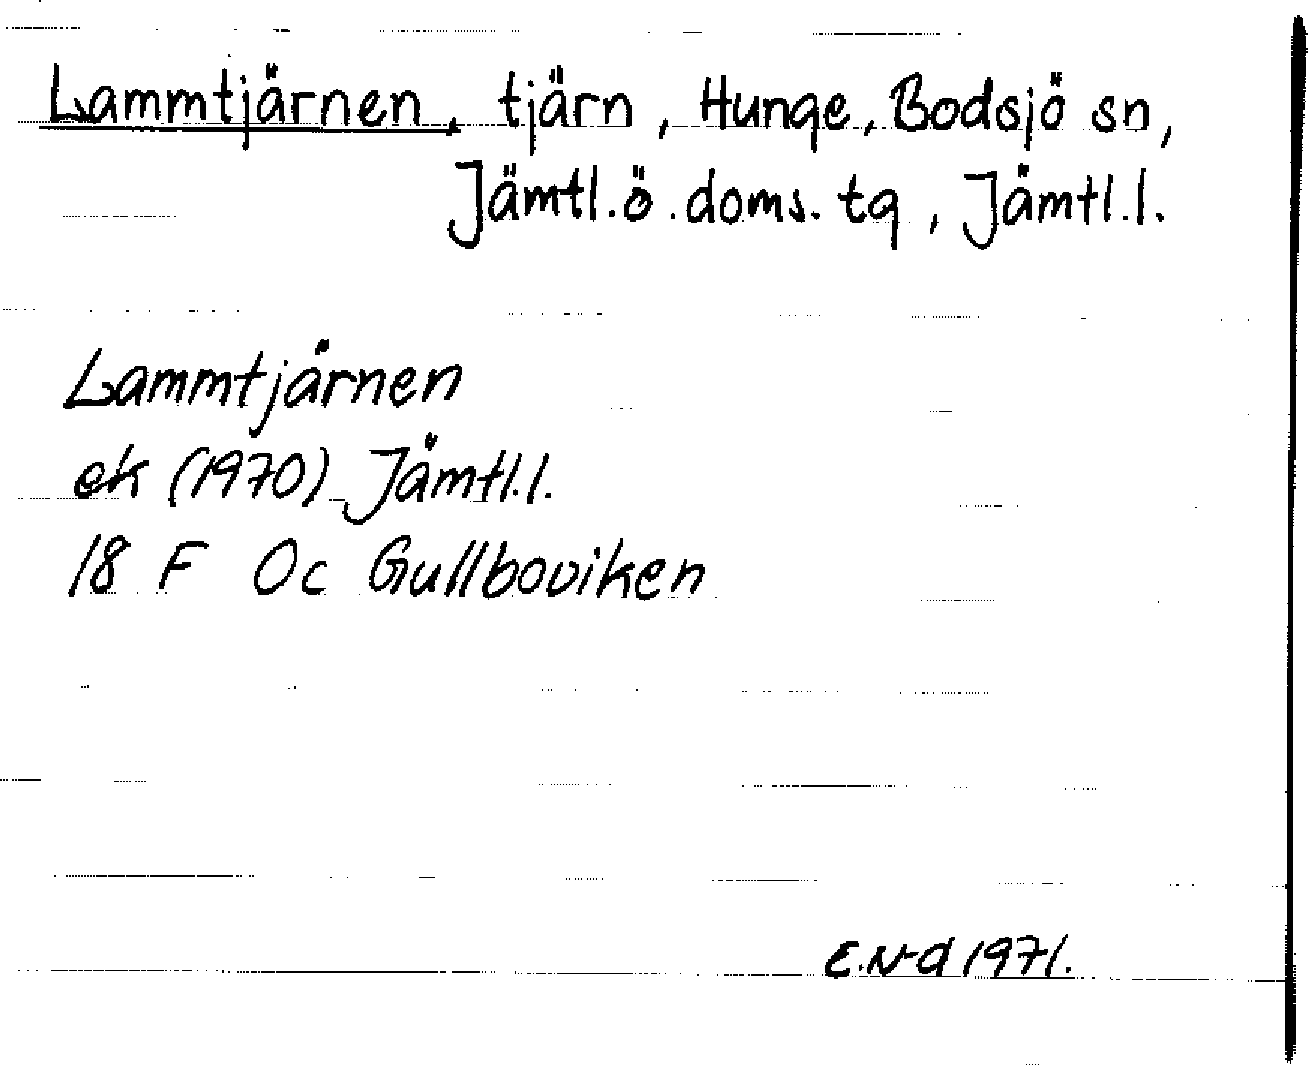 Lammtjärnen, tjärn, Hunge, Bodsjö sn,
Jämtl. ö. doms. tg, Jämtl. l.
Lammtjärnen
ek (1970) Jämtl. l.
18 F Oc Gullboviken
E.N-d 1971.